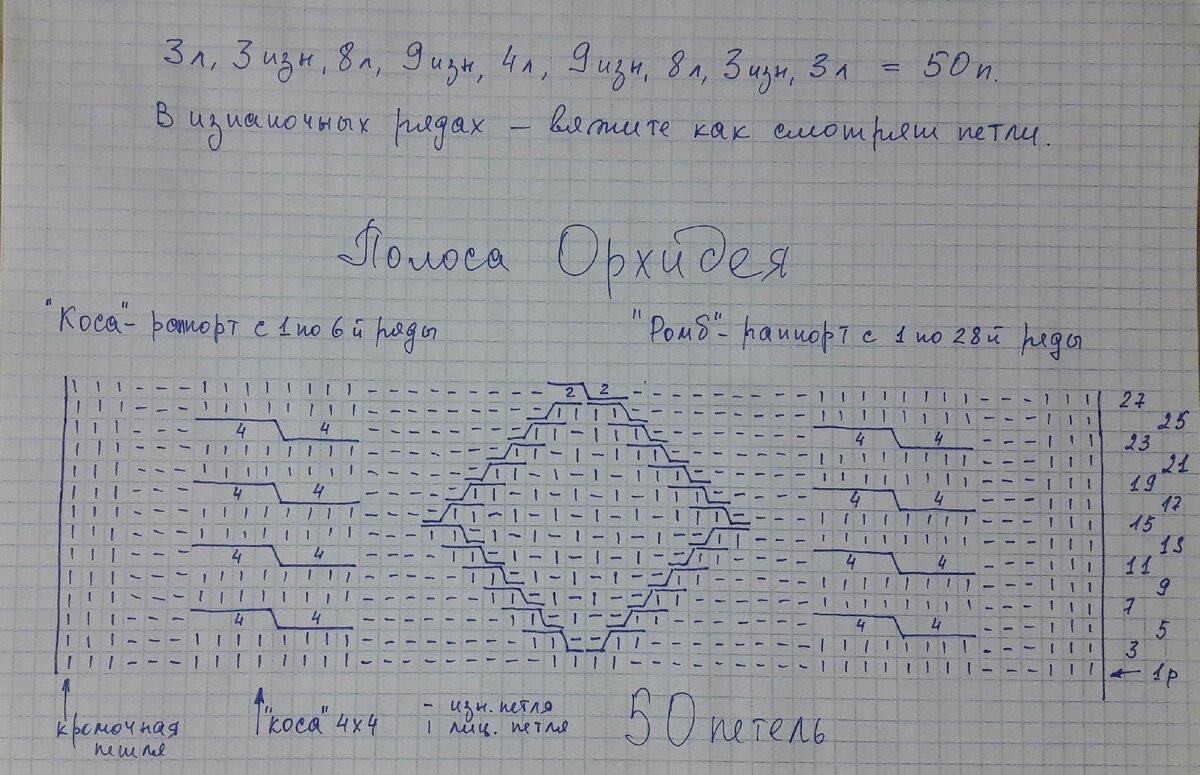 3л, 3изн, 8л, 9изн, 4л, 9изн, 8л, 3изн, 3л = 50п.
В изнаночных рядах – вяжите как смотрят петли.
Полоса Орхидея
"Коса"- раппорт с 1 по 6й ряды
"Ромб"- раппорт с 1 по 28й ряды
2 2
27
25
4 4 4 4
23
21
19
4 4 4 4
17
15
13
4 4 4 4
11
9
7
4 4 4 4
5
3
1р
кромочная петля
"коса" 4х4
- изн. петля
ı лиц. петля
50 петель